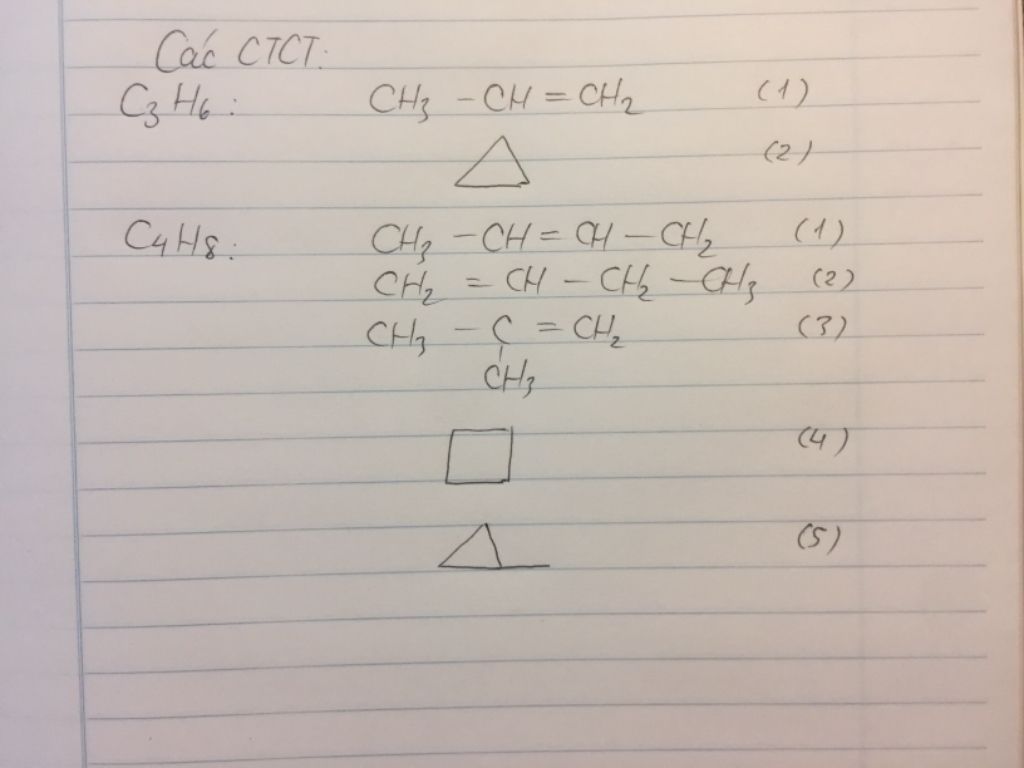 Các CTCT:
C₃H₆: CH₃ – CH = CH₂ (1)
(2)
C₄H₈: CH₃ – CH = CH – CH₂ (1)
CH₂ = CH – CH₂ – CH₃ (2)
CH₃ – C = CH₂ (3)
CH₃
(4)
(5)